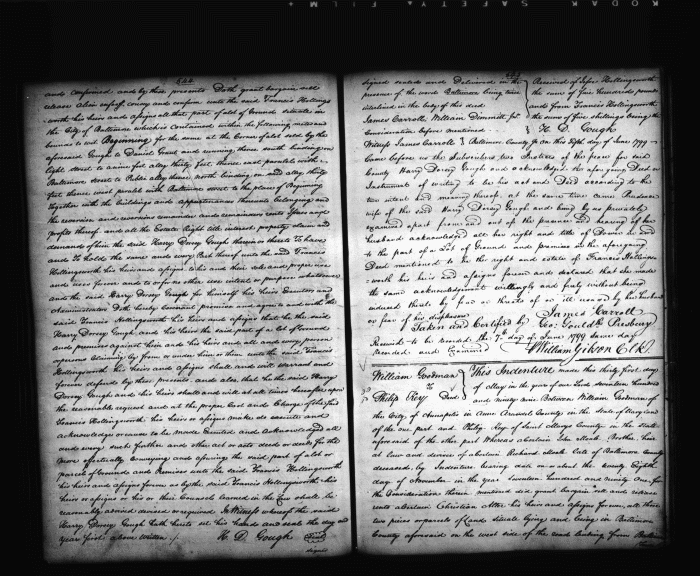 644
and confirmed and by these presents Doth grant bargain sell
release alien enfeoff convey and confirm unto the said Francis Hollings
worth his heirs and assigns all that part of a lot of Ground situate in
the City of Baltimore which is contained within the following metes and
bounds to wit Beginning for the same at the corner of a lot sold by the
aforesaid Gough to Daniel Grant and running thence south binding on
Light street to another alley thirty feet thence east parallel with
Baltimore street to Public alley thence north binding on said alley thirty
feet thence west parallel with Baltimore street to the place of Beginning
together with the buildings and appurtenances thereunto belonging and
the reversion and reversions remainder and remainders rents Issues and
profits thereof and all the Estate Right title interest property claim and
demand of him the said Harry Dorsey Gough therein or thereto To have
and to hold the same and every Part thereof unto the said Francis
Hollingsworth his heirs and assigns to his and their sole and proper use
and uses forever and to or for no other use intent or purpose whatsoever
and the said Harry Dorsey Gough for himself his heirs Executors and
Administrators Doth hereby Covenant promise and agree to and with the
said Francis Hollingsworth his heirs and assigns that he the said
Harry Dorsey Gough and his heirs the said part of a lot of Ground
and premises against him and his heirs and all and every person
or persons claiming by from or under him or them unto the said Francis
Hollingsworth his heirs and assigns shall and will warrant and
forever defend by these presents and also that he the said Harry
Dorsey Gough and his heirs shall and will at all times hereafter upon
the reasonable request and at the proper Cost and Charge of the said
Francis Hollingsworth his heirs or assigns make do execute and
acknowledge or cause to be made Executed and acknowledged all
and every such further and other act or acts deed or deeds for the
more effectually Conveying and assuring the said part of a lot or
parcel of Ground and Premises unto the said Francis Hollingsworth
his heirs and assigns forever as by the said Francis Hollingsworth
his heirs or assigns or his or their Counsel learned in the Law shall be
reasonably advised devised or required In Witness whereof the said
Harry Dorsey Gough hath hereto set his hand and seal the day and
year first above written
H. D. Gough
signed
645
signed sealed and Delivered in the
presence of the word Baltimore being twice
interlined in the body of this deed
James Carroll William Dimmitt for
Consideration before mentioned
Received of Jesse Hollingsworth
the sum of five hundred pounds
and from Francis Hollingsworth
the sum of five shillings being the
H. D. Gough
Witness James Carroll
Baltimore County fs on this fifth day of June 1799
Came before us the Subscribers two Justices of the peace for said
County Harry Dorsey Gough and acknowledged the aforegoing Deed or
Instrument of writing to be his act and Deed according to the
true intent and meaning thereof, at the same time came Prudence
wife of the said Harry Dorsey Gough and being by us privately
examined apart from and out of the presence and hearing of her
husband acknowledged all her right and title of Dower in and
to the part of a Lot of Ground and premises in the aforegoing
Deed mentioned to be the right and estate of Francis Hollings
worth his heirs and assigns forever and declared that she made
the same acknowledgment willingly and freely without being
induced thereto by fear or threats of or ill usage by her husband
or fear of his displeasure
James Carroll
Taken and Certified by Geo: Gouldg. Presbury
Received to be recorded the 7th day of June 1799 same day
recorded and Examined
William Gibson Clk.
William Goodman
To
Philip Key
Deed
This Indenture made this thirty first day
of May in the year of our Lord seventeen hundred
and ninety nine Between William Goodman of
the City of Annapolis in Anne Arundel County in the State of Maryland
of the one part and Philip Key of Saint Marys County in the state
aforesaid of the other part Whereas a certain John Meale Brother heir
at law and devisee of a certain Richard Meale late of Baltimore County
deceased by Indenture bearing date on or about the twenty Eighth
day of November in the year seventeen hundred and ninety one for
the Consideration therein mentioned did grant bargain sell and release
unto a certain Christian Etter his heirs and assigns forever, all those
two pieces or parcels of Land situate lying and being in Baltimore
County aforesaid on the west side of the road leading from Baltimore
KODAK SAFETY FILM